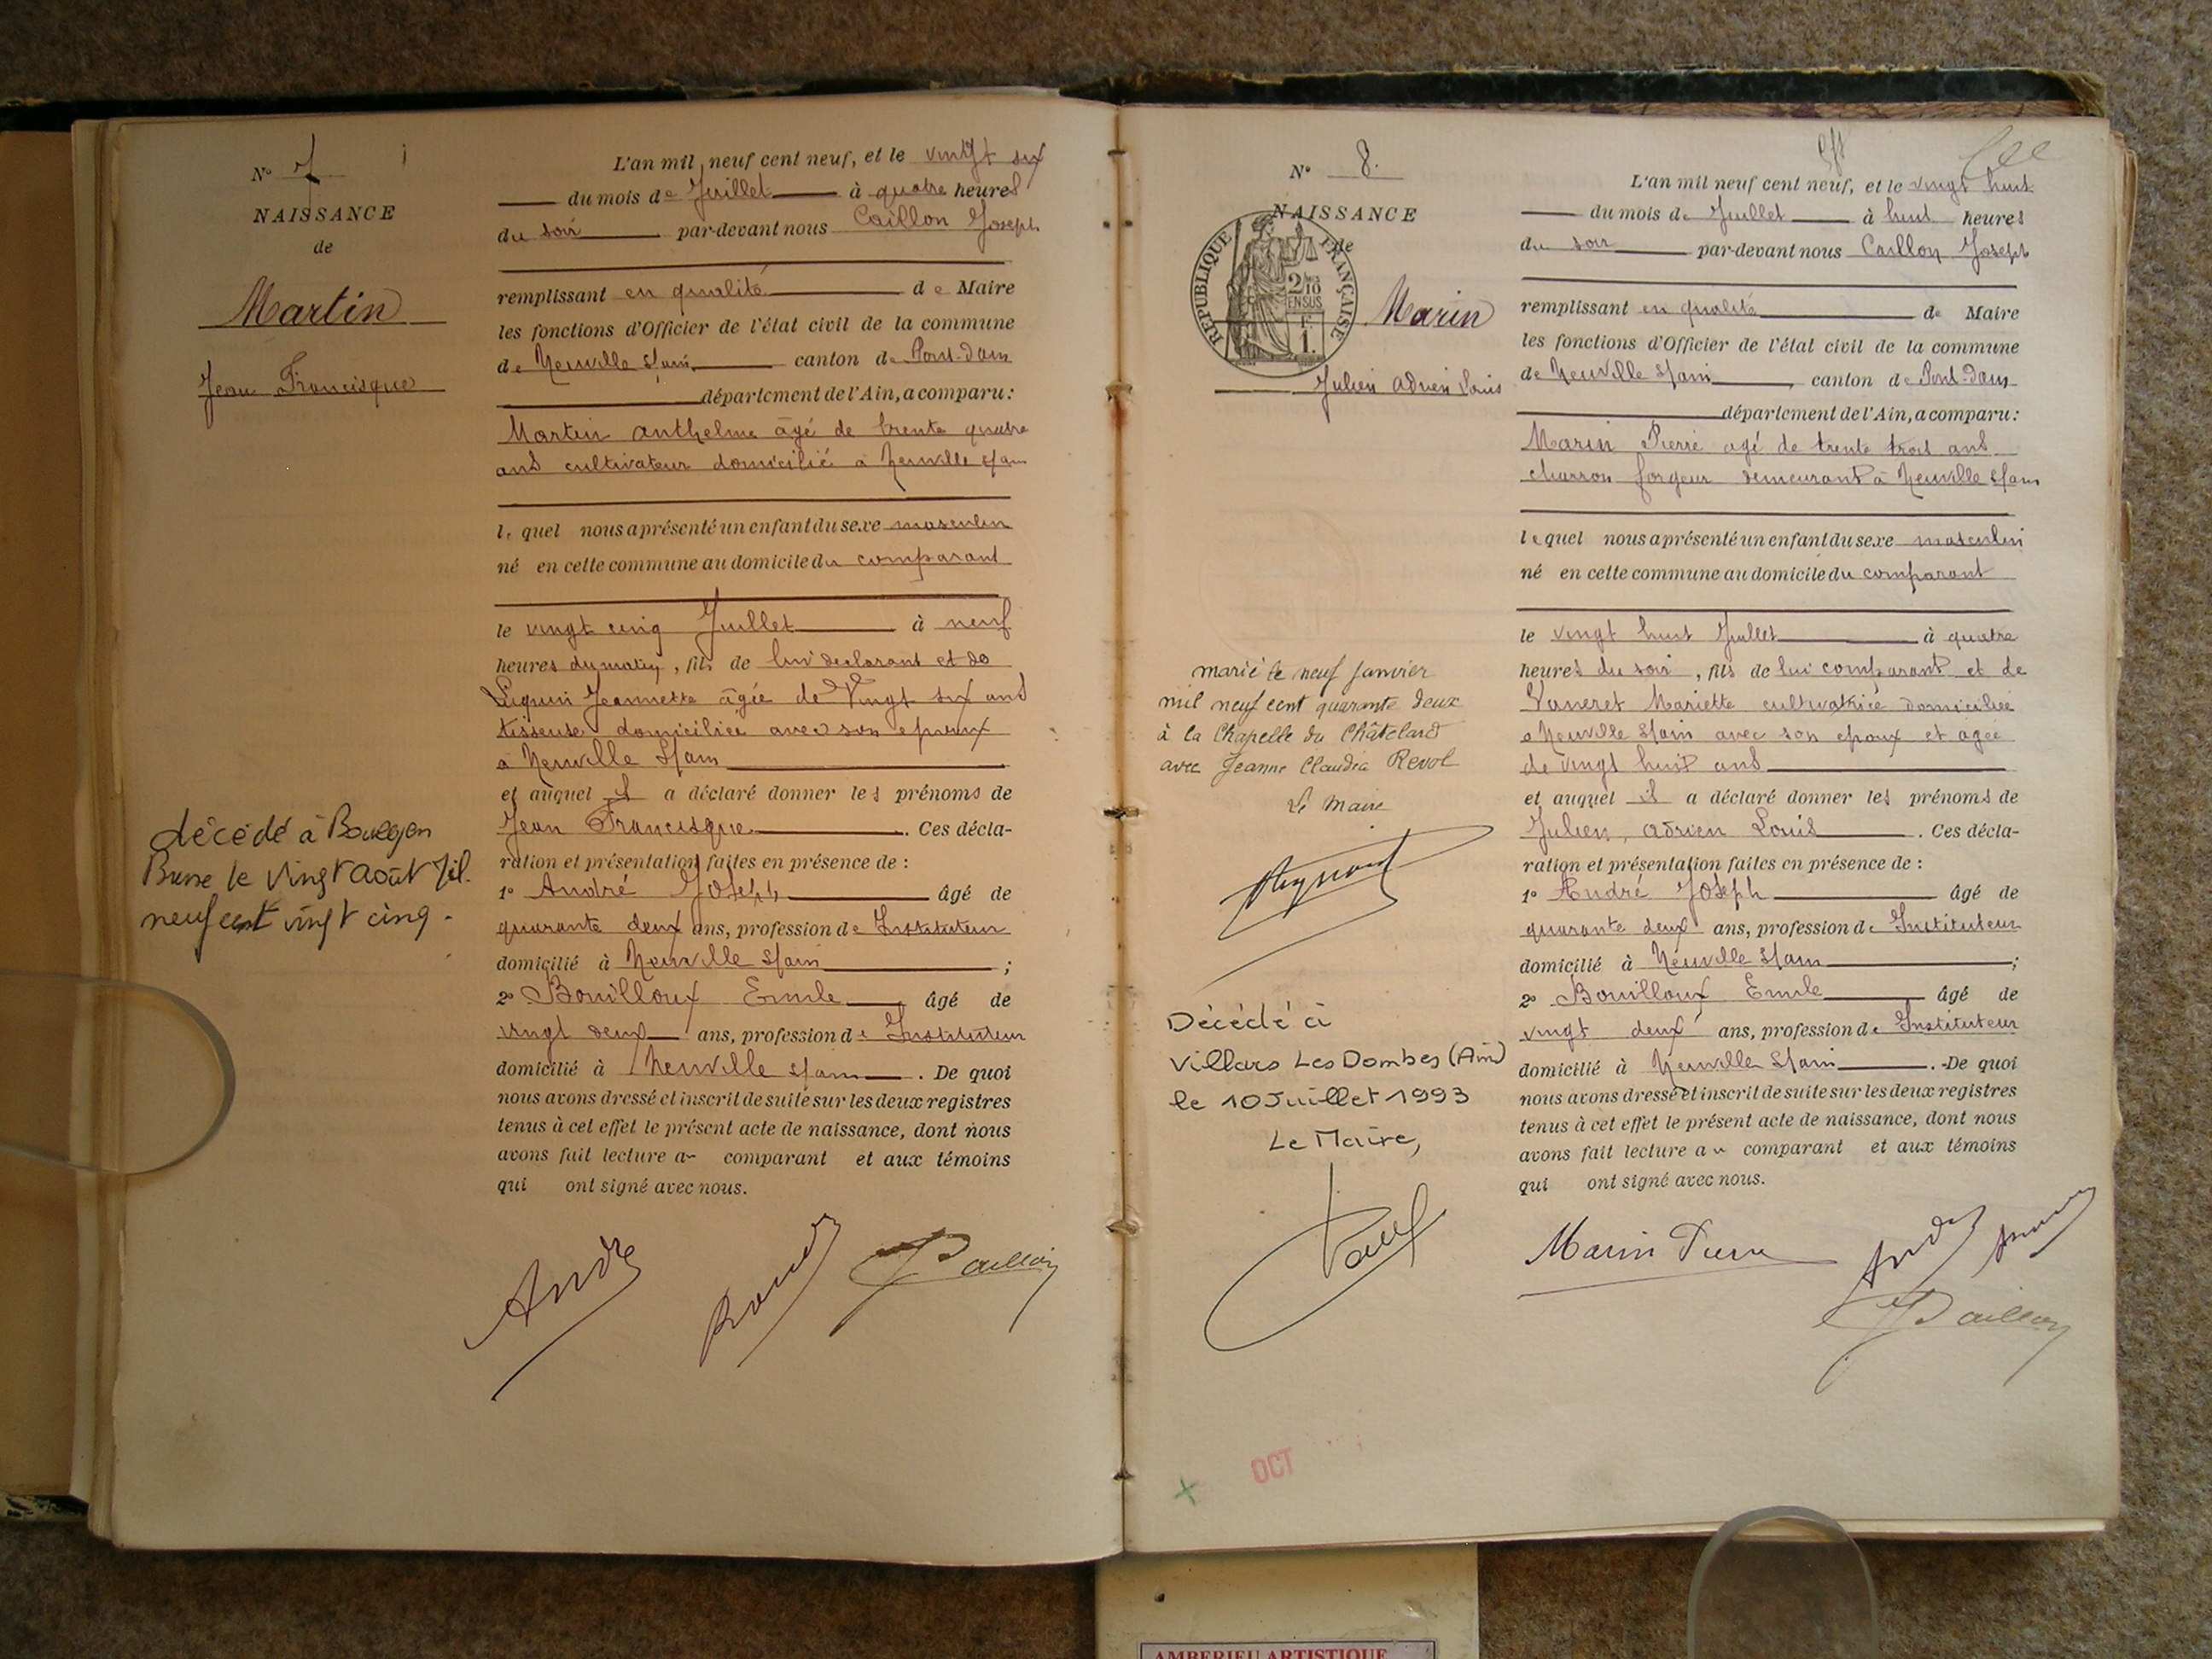 N° 7
NAISSANCE
de
Martin
Jean Francisque
décédé à Bourg en
le vingt août mil
neuf cent vingt cinq.
L'an mil neuf cent neuf, et le vingt six
du mois de Juillet à quatre heures
du soir par-devant nous Caillon Joseph
remplissant en qualité de Maire
les fonctions d'Officier de l'état civil de la commune
de Neuville s/ain canton de Pont-d'ain
département de l'Ain, a comparu:
Martin anthelme âgé de trente quatre
ans cultivateur domicilié à Neuville s/ain
lequel nous a présenté un enfant du sexe masculin
né en cette commune au domicile du comparant
le vingt cinq Juillet à neuf
heures du matin, fils de lui déclarant et de
Jeannette âgée de Vingt six ans
tisseuse domiciliée avec son époux
à Neuville s/ain
et auquel il a déclaré donner les prénoms de
Jean Francisque. Ces décla-
ration et présentation faites en présence de :
1° André Joseph âgé de
quarante deux ans, profession de Instituteur
domicilié à Neuville s/ain ;
2° Bouilloux Emile âgé de
vingt deux ans, profession de Instituteur
domicilié à Neuville s/ain. De quoi
nous avons dressé et inscrit de suite sur les deux registres
tenus à cet effet le présent acte de naissance, dont nous
avons fait lecture au comparant et aux témoins
qui ont signé avec nous.
André
Caillon
N° 8.
NAISSANCE
de
RÉPUBLIQUE FRANÇAISE
2/10 EN SUS
1.
Marin
Julien adrien Louis
marié le neuf Janvier
mil neuf cent quarante deux
à la Chapelle du Châtelard
avec Jeanne Claudia Revol
Le Maire
Décédé à
Villars Les Dombes (Ain)
le 10 Juillet 1993
Le Maire,
OCT
L'an mil neuf cent neuf, et le vingt huit
du mois de Juillet à huit heures
du soir par-devant nous Caillon Joseph
remplissant en qualité de Maire
les fonctions d'Officier de l'état civil de la commune
de Neuville s/ain, canton de Pont-d'ain
département de l'Ain, a comparu:
Marin Pierre agé de trente trois ans
charron forgeur demeurant à Neuville s/ain
lequel nous a présenté un enfant du sexe masculin
né en cette commune au domicile du comparant
le vingt huit Juillet à quatre
heures du soir, fils de lui comparant et de
Mariette cultivatrice domiciliée
à Neuville s/ain avec son époux et agée
de vingt huit ans
et auquel il a déclaré donner les prénoms de
Julien, adrien Louis. Ces décla-
ration et présentation faites en présence de :
1° André Joseph âgé de
quarante deux ans, profession de Instituteur
domicilié à Neuville s/ain;
2° Bouilloux Emile âgé de
vingt deux ans, profession de Instituteur
domicilié à Neuville s/ain. De quoi
nous avons dressé et inscrit de suite sur les deux registres
tenus à cet effet le présent acte de naissance, dont nous
avons fait lecture au comparant et aux témoins
qui ont signé avec nous.
Marin Pierre
André
Caillon
AMBERIEU ARTISTIQUE